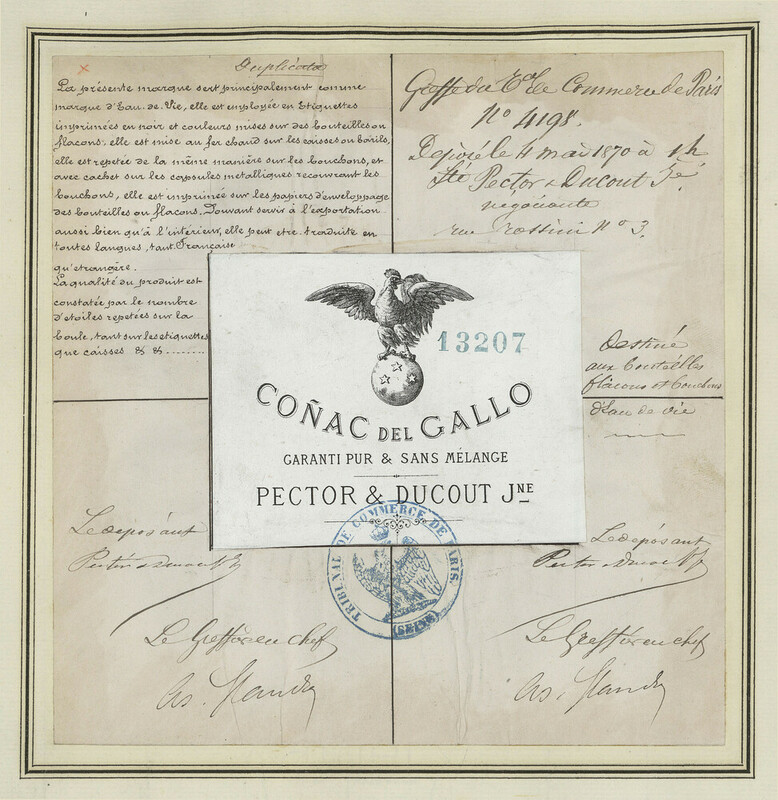 Duplicata
La présente marque sert principalement comme
marque d'Eau.de.Vie, elle est employée en Etiquettes
imprimées en noir et couleurs mises sur des bouteilles ou
flacons. elle est mise au fer chaud sur les caisses ou barils,
elle est repetée de la même manière sur les bouchons, et
avec cachet sur les capsules metalliques recouvrant les
bouchons, elle est imprimée sur les papiers d'enveloppage
des bouteilles ou flacons. Pouvant servir à l'exportation
aussi bien qu'à l'intérieur, elle peut etre traduite en
toutes langues, tant Française
qu'etrangère.
La qualité du produit est
constatée par le nombre
d'etoiles repetées sur la
boule, tant sur les etiquettes
que caisses & &.
Greffe du Eal de Commerce de Paris
No 4198.
Déposé le 4 mai 1870 à 1h
Sté Pector & Ducout Jé.
négociants
rue Rossini No 3.
13207
COÑAC DEL GALLO
GARANTI PUR & SANS MÉLANGE
PECTOR & DUCOUT JNE
Destiné
aux bouteilles
flacons et bouchons
d'Eau de vie
TRIBUNAL DE COMMERCE DE PARIS.
(SEINE)
Le déposant
Pector & Ducout
Le Greffier en chef
Le déposant
Pector & Ducout
Le Greffier en chef